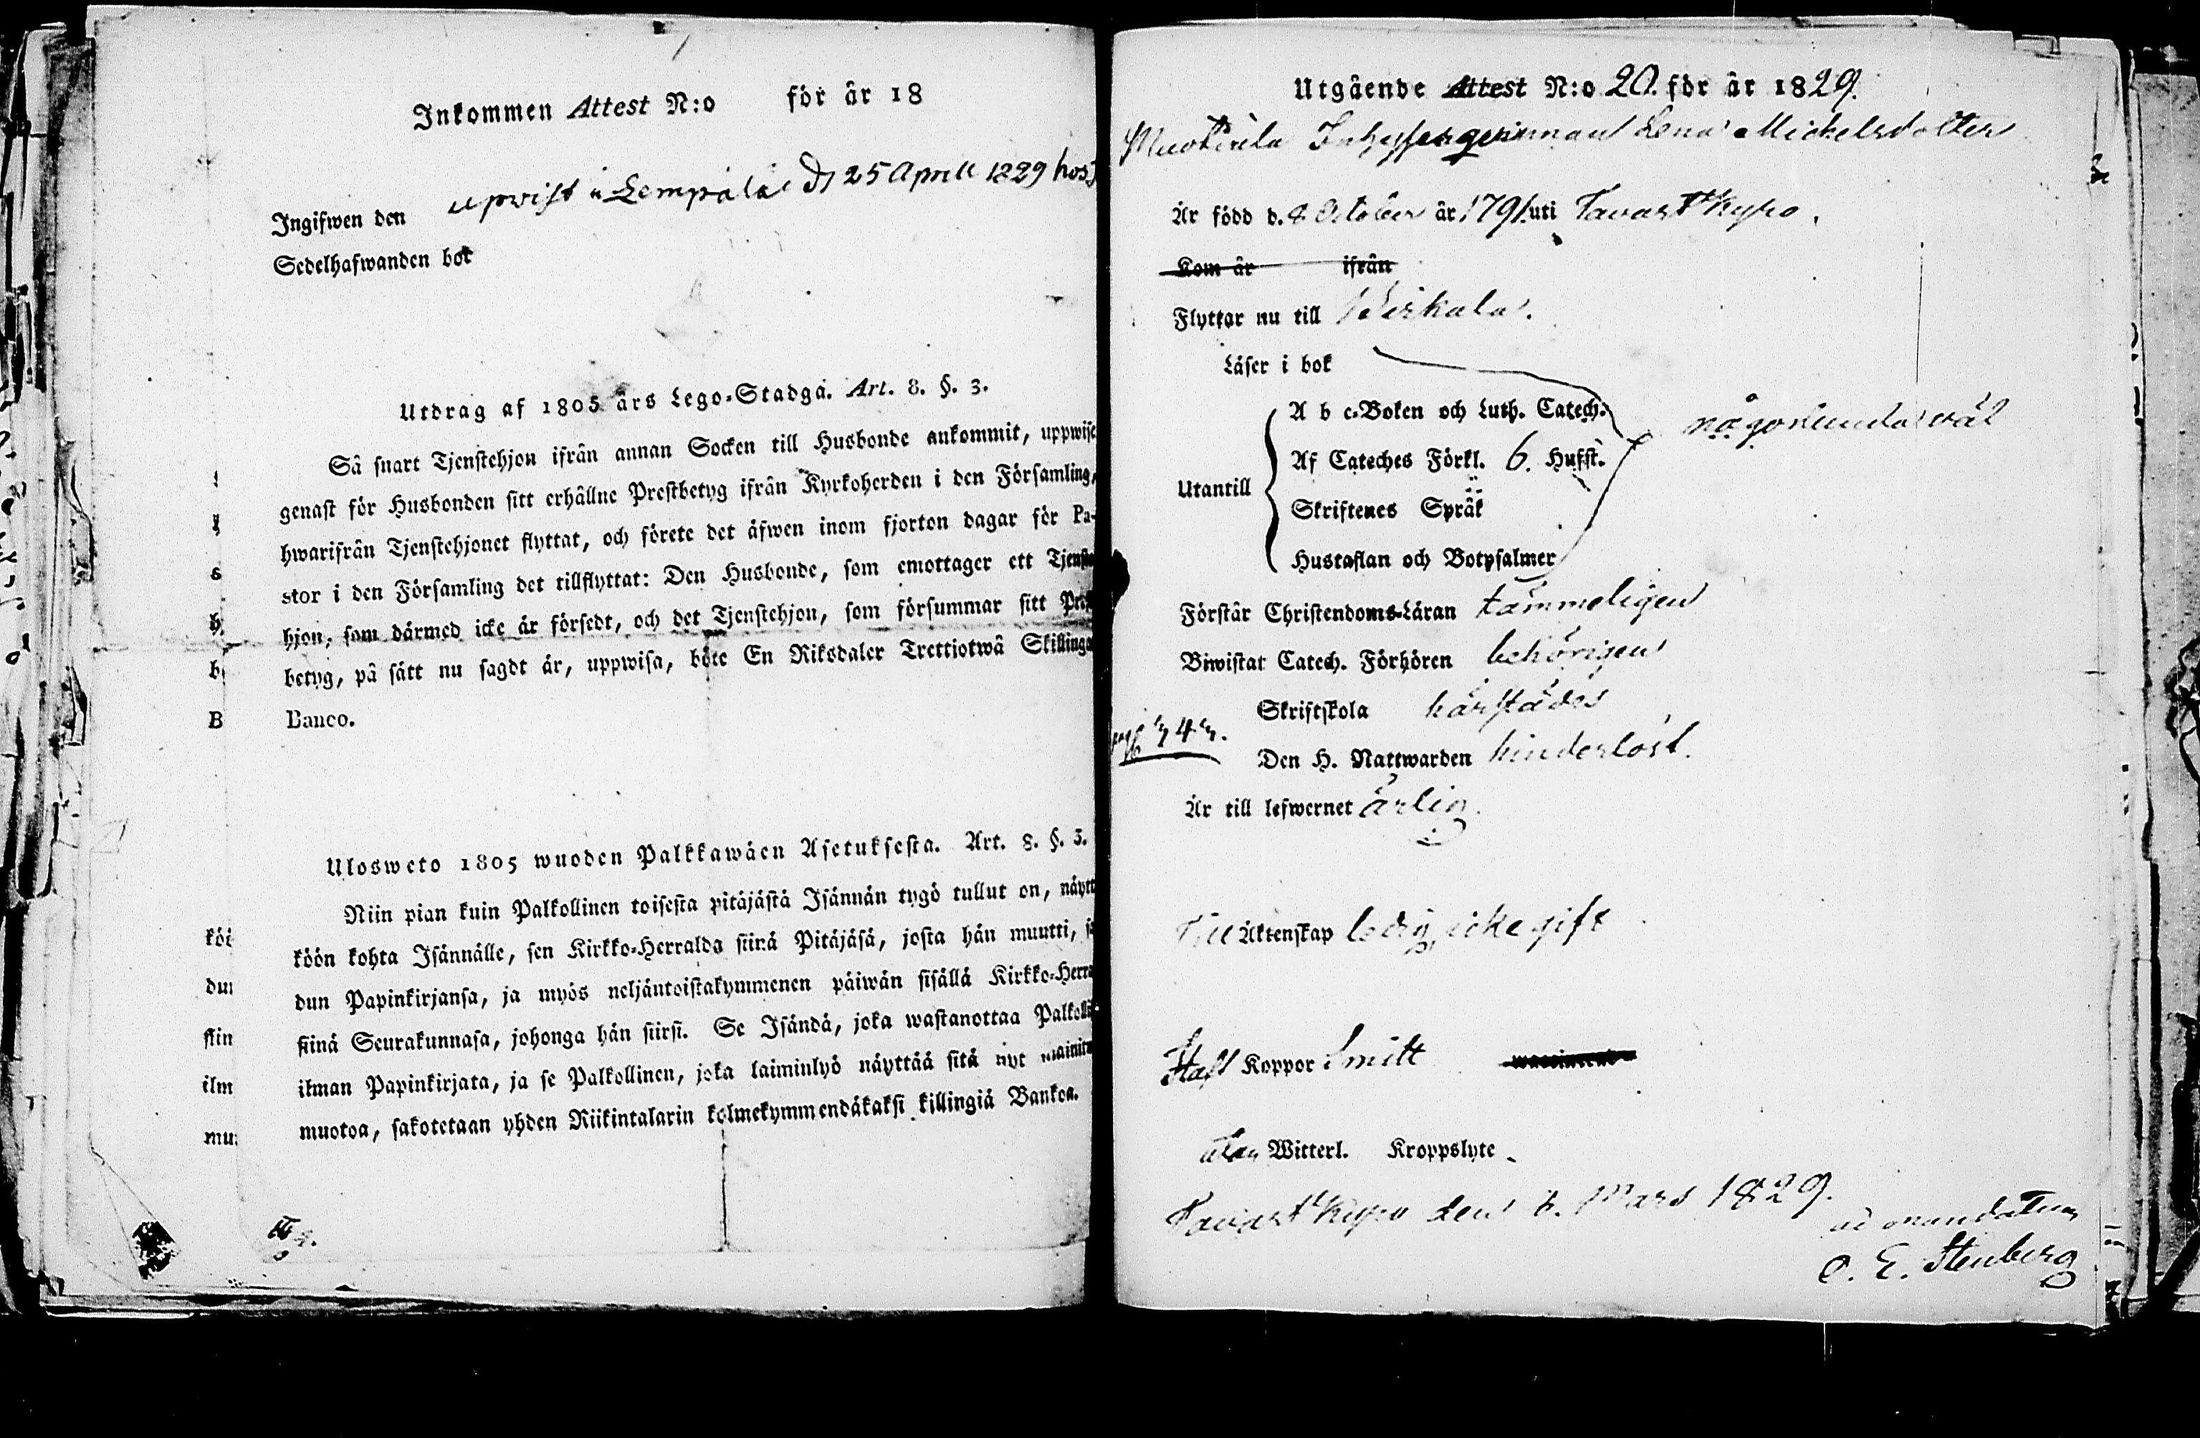 Inkommen Attest N:o för år 18
upwist i Lempälä d 25 Aprill 1829 hos
Ingifwen den
Sedelhafwanden bok
Utdrag af 1805 års Lego-Stadga. Art. 8. §. 3.
Så snart Tjenstehjon ifrån annan Socken till Husbonde ankommit, uppwise
genast för Husbonden sitt erhållne Prestbetyg ifrån Kyrkoherden i den Församling,
hwarifrån Tjenstehjonet flyttat, och förete det äfwen inom fjorton dagar för Pa-
stor i den Församling det tillflyttat: Den Husbonde, som emottager ett Tjenste
hjon, som därmed icke är försedt, och det Tjenstehjon, som försummar sitt Prest
betyg, på sätt nu sagdt är, uppwisa, böte En Riksdaler Trettiotwå Skillingar
Banco.
Ulosweto 1805 wuoden Palkkawäen Asetuksesta. Art. 8. §. 3.
Niin pian kuin Palkollinen toisesta pitäjästä Isännän tygö tullut on, näytt
köön kohta Isännälle, sen Kirkko-Herralda siinä Pitäjäsä, josta hän muutti, s
dun Papinkirjansa, ja myös neljäntoistakymmenen päiwän sisällä Kirkko-Herra
siinä Seurakunnasa, johonga hän siirsi. Se Isändä, joka wastanottaa Palkolli
ilman Papinkirjata, ja se Palkollinen, joka laiminlyö näyttää sitä nyt mainitu
muotoa, sakotetaan yhden Riikintalarin kolmekymmendäkaksi killingiä Bankoa.
köi
dun
siin
ilm
mu
b
B
Utgående Attest N:o 20. för år 1829.
Inhysesqvinnan Lena Mickelsdotter
Är född d. 8 October år 1791. uti Tavastkyro.
Kom år ifrån
Flyttar nu till Birkala.
Läser i bok
A b c-Boken och Luth. Catech.
någorlunda väl
Af Cateches Förkl. 6. Hufst.
Utantill
Skriftenes Språk
Hustaflan och Botpsalmer
Förstår Christendoms-Läran tämmeligen
Biwistat Catech. Förhören behörigen
Skriftskola härstädes
Den H. Nattwarden hinderlöst.
Är till lefwernet ärlig.
Till Äktenskap ledig, icke gift
Haft Koppor Smitt
utan Witterl. Kroppslyte.
Tavastkyro den 6. Mars 1829.
ad mandatum
O. E. Stenberg